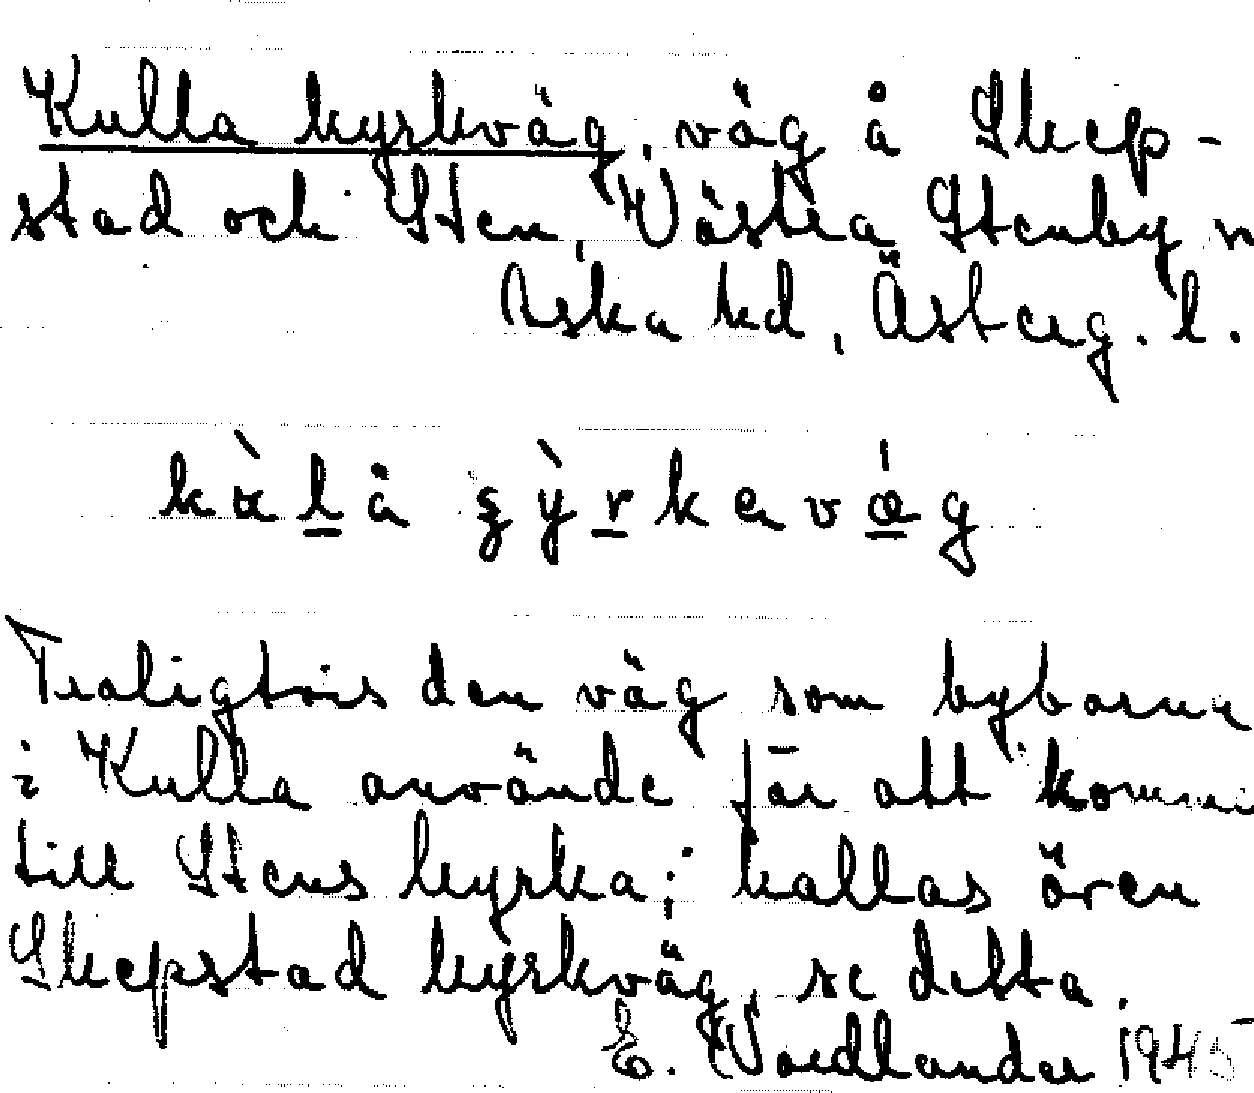 Kulla kyrkväg, väg å Skep-
stad och Sten, Västra Stenby sn
Aska hd, Österg. l.
kàlä ȿỳrkeváeg
Troligtvis den väg som byborna
i Kulla använde för att komma
till Stens kyrka; kallas även
Skepstad kyrkväg, se detta.
E. Nordlander 1945